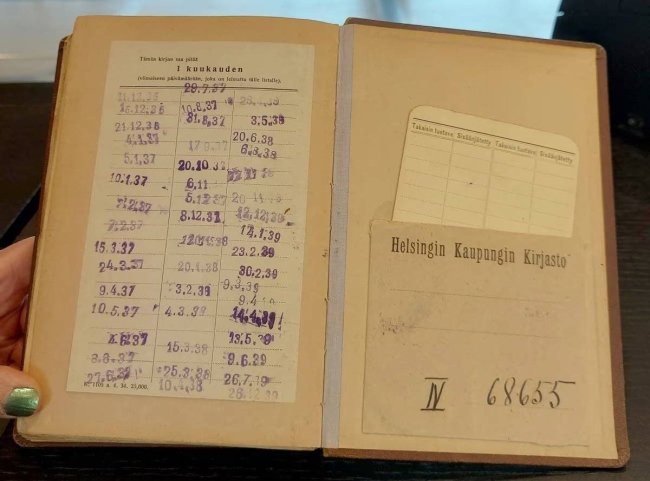 Tämän kirjan saa pitää
1 kuukauden
viimeiseen päivämäärään, joka on leimattu tälle listalle.
29.7.37
11.12.36
15.12.36 10.8.37
21.12.36 31.8.37 3.5.38
4.1.37 20.6.38
5.1.37 6.8.38
10.1.37 20.10.37
6.11
7.2.37 5.12.37
7.2.37 8.12.37 12.12.38
15.3.37 14.1.39
24.3.37 20.1.38 23.2.39
9.4.37 3.2.38 30.2.39
10.5.37 4.3.38 9.3.39
14.4.39
4.6.37 15.3.38 13.5.39
8.6.37 9.6.39
27.6.37 25.3.38 26.7.39
10.4.38
Takaisin tuotava Sisäänjätetty Takaisin tuotava Sisäänjätetty
Helsingin Kaupungin Kirjasto
IV 68655